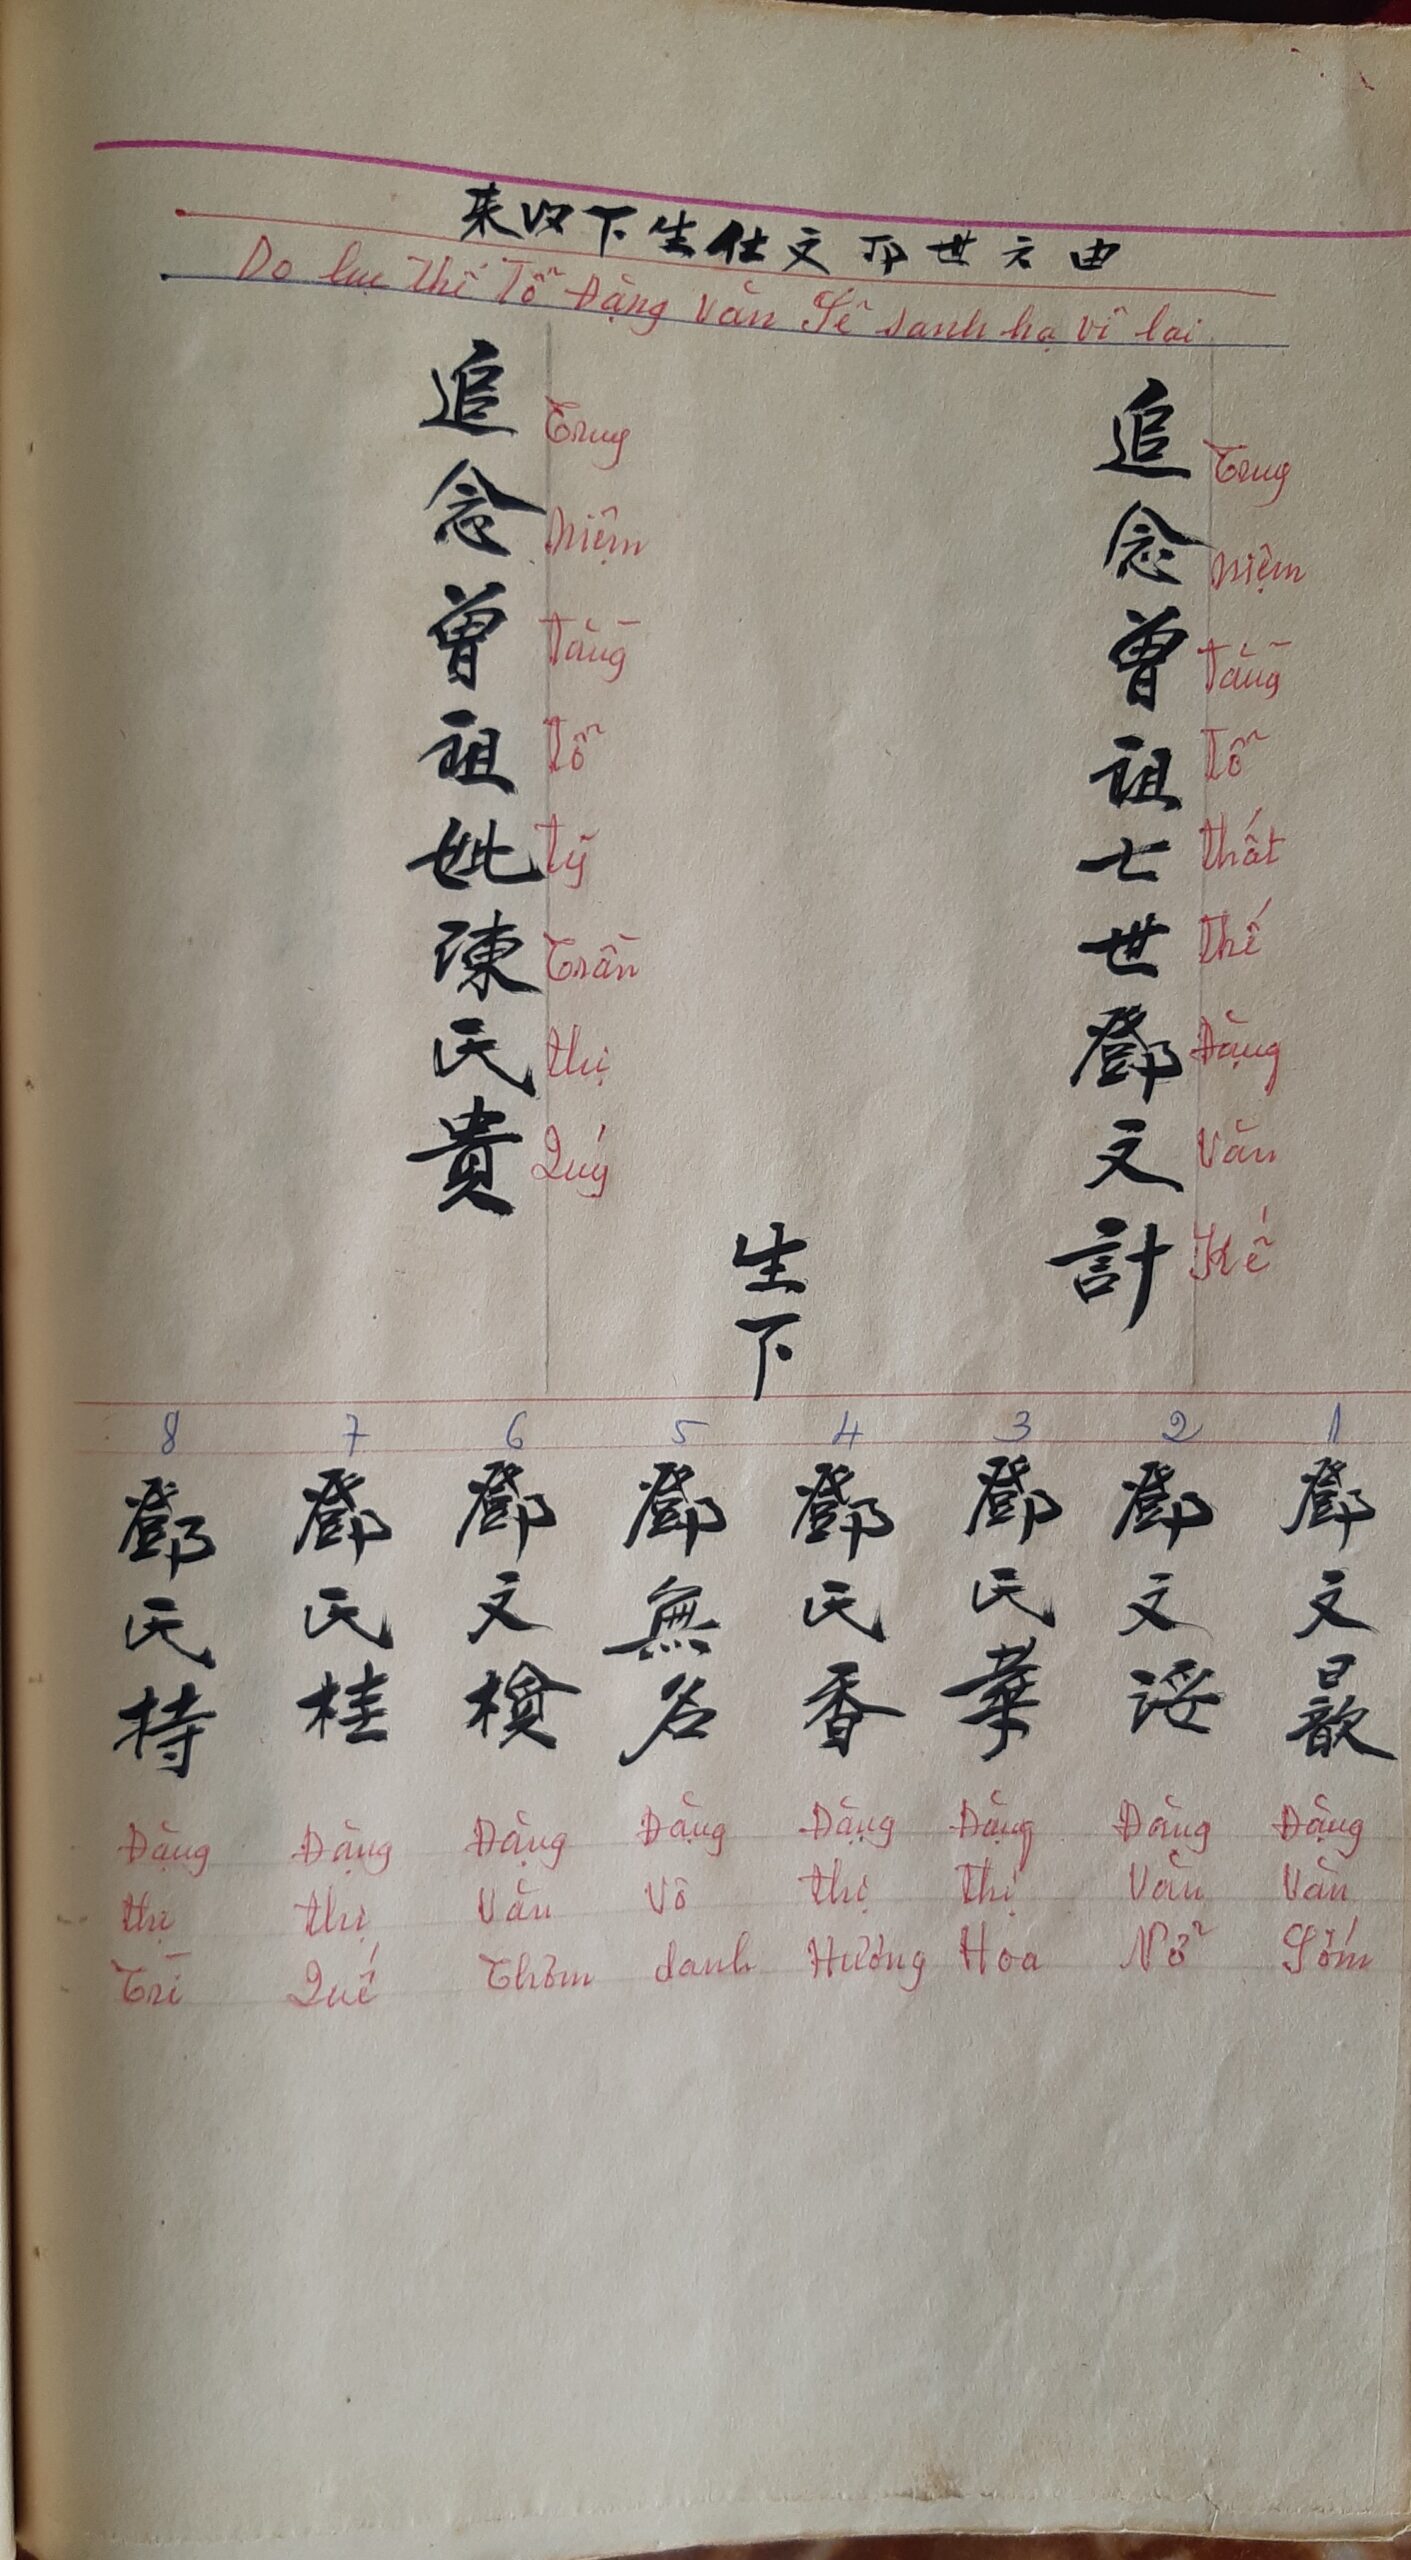 由六世耶文仕生下以来
Do lục Thế Tổ Đặng Văn Sĩ sanh hạ vĩ lai
追念曾祖七世鄧文計
Truy niệm Tằng Tổ thất thế Đặng Văn Kế
追念曾祖妣陳氏貴
Truy niệm Tằng Tổ Tỷ Trần thị Quý
生下
1 2 3 4 5 6 7 8
鄧文
鄧文
鄧氏華
鄧氏香
鄧無名
鄧文
鄧氏桂
鄧氏持
Đặng Văn Sớm
Đặng Văn Nỡ
Đặng Thị Hoa
Đặng thị Hương
Đặng Vô danh
Đặng Văn Thơm
Đặng thị Quế
Đặng thị Trì